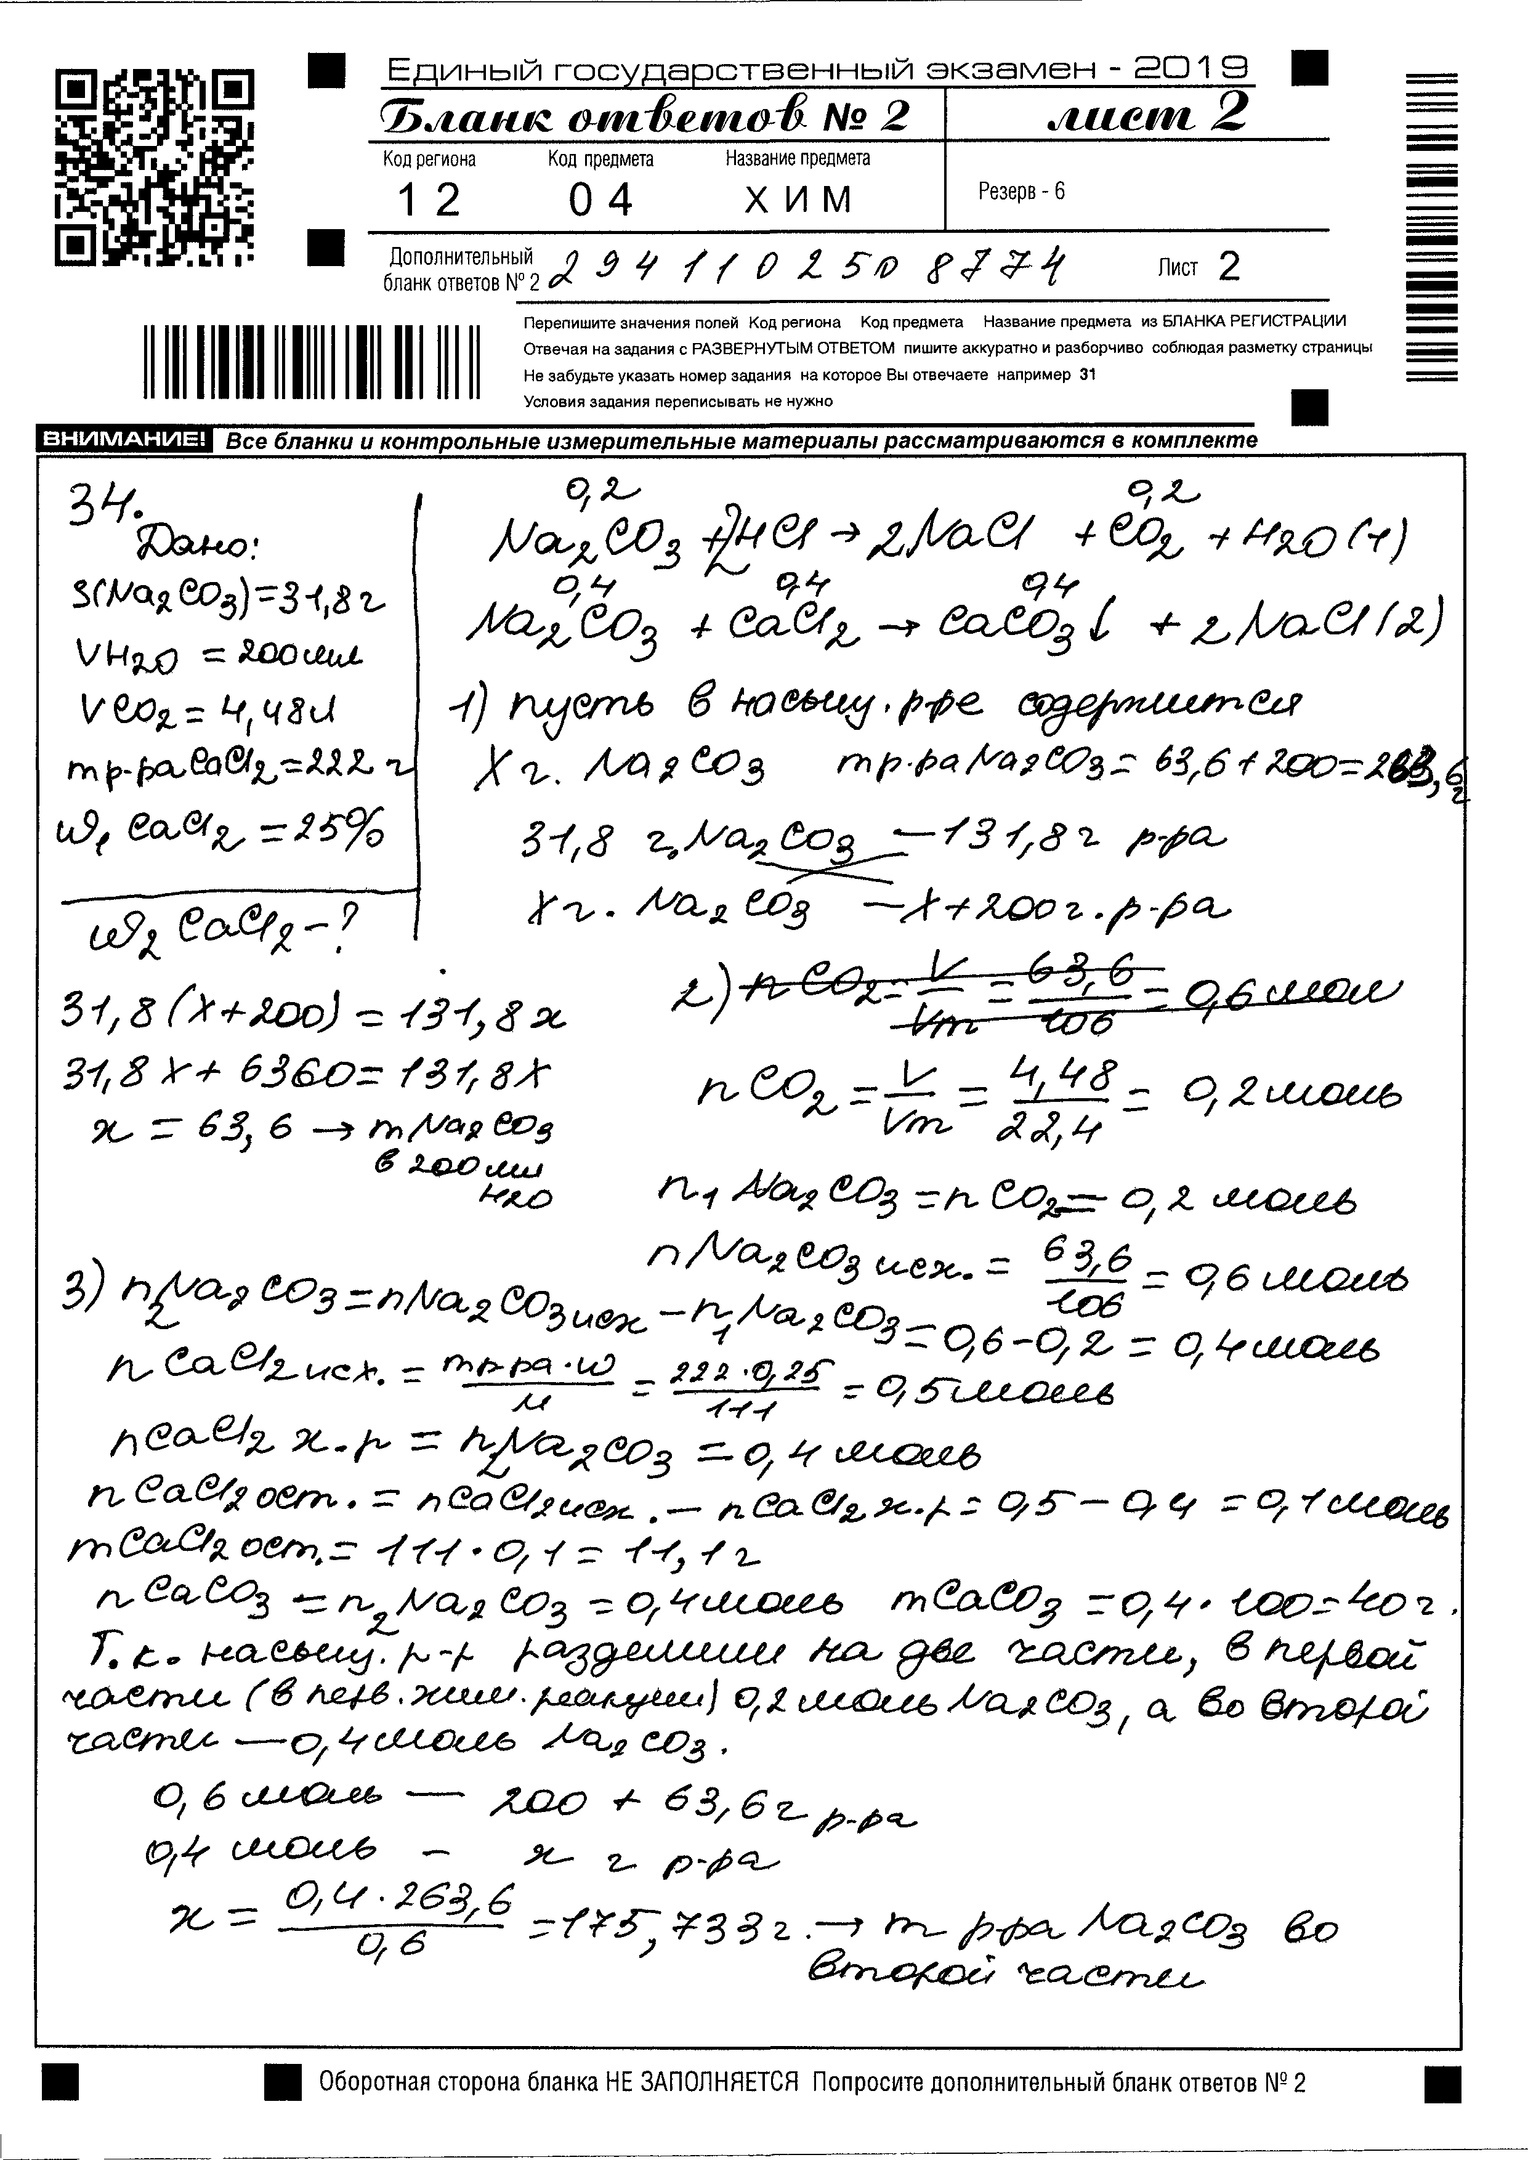 Единый государственный экзамен - 2019
Бланк ответов № 2 лист 2
Код региона Код предмета Название предмета
12 04 ХИМ Резерв - 6
Дополнительный бланк ответов № 2 2941102508774 Лист 2
Перепишите значения полей Код региона Код предмета Название предмета из БЛАНКА РЕГИСТРАЦИИ
Отвечая на задания с РАЗВЕРНУТЫМ ОТВЕТОМ пишите аккуратно и разборчиво соблюдая разметку страницы
Не забудьте указать номер задания на которое Вы отвечаете например 31
Условия задания переписывать не нужно
ВНИМАНИЕ! Все бланки и контрольные измерительные материалы рассматриваются в комплекте
34.
Дано:
S(Na2CO3)=31,8г
VH2O = 200мл
VCO2 = 4,48л
mр-раCaCl2=222 г
ω1 CaCl2 = 25%
ω2 CaCl2 - ?
0,2 0,2
Na2CO3 + 2HCl → 2NaCl + CO2 + H2O (1)
0,4 0,4 0,4
Na2CO3 + CaCl2 → CaCO3↓ + 2NaCl (2)
1) пусть в насыщ. р-ре содержится
X г. Na2CO3 mр-раNa2CO3 = 63,6+200=263,6г
31,8 г. Na2CO3 — 131,8г р-ра
X г. Na2CO3 — X+200г. р-ра
31,8(X+200) = 131,8x
31,8X + 6360 = 131,8X
x = 63,6 → mNa2CO3
в 200мл
H2O
2) nCO2 = V/Vm = 63,6/106 = 0,6 мол
nCO2 = V/Vm = 4,48/22,4 = 0,2моль
n1 Na2CO3 = nCO2 = 0,2 моль
nNa2CO3 исх. = 63,6/106 = 0,6 моль
3) n2Na2CO3 = nNa2CO3исх - n1Na2CO3 = 0,6-0,2 = 0,4моль
nCaCl2 исх. = mр-ра·ω/M = 222·0,25/111 = 0,5моль
nCaCl2 х.р = n2Na2CO3 = 0,4 моль
nCaCl2 ост. = nCaCl2исх. - nCaCl2х.р = 0,5 - 0,4 = 0,1моль
mCaCl2 ост. = 111·0,1 = 11,1г
nCaCO3 = n2Na2CO3 = 0,4моль mCaCO3 = 0,4·100=40г.
Т.к. насыщ. р-р разделили на две части, в первой
части (в перв. хим. реакции) 0,2моль Na2CO3, а во второй
части — 0,4моль Na2CO3.
0,6 моль — 200 + 63,6г р-ра
0,4 моль - x г р-ра
x = 0,4·263,6/0,6 = 175,733г. → m р-ра Na2CO3 во
второй части
Оборотная сторона бланка НЕ ЗАПОЛНЯЕТСЯ Попросите дополнительный бланк ответов № 2